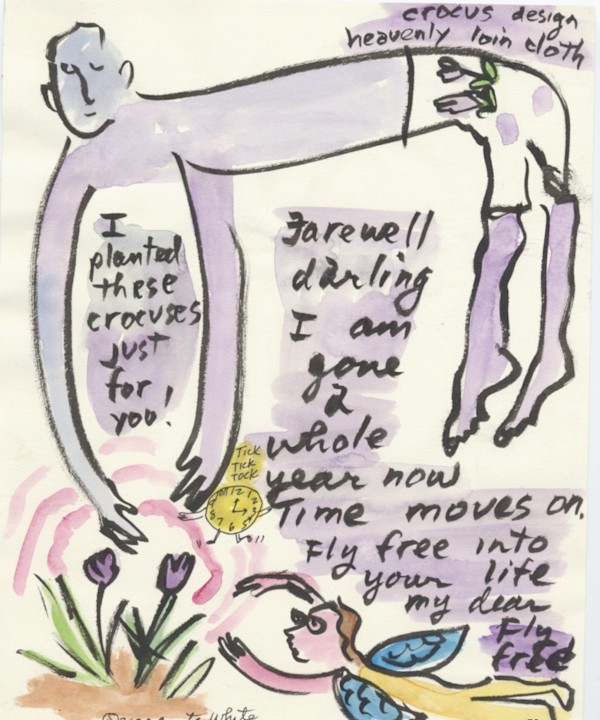 crocus design
heavenly loin cloth
I
planted
these
crocuses
just
for
you!
Farewell
darling
I am
gone
a
whole
year now
Time moves on.
Fly free into
your life
my dear
Fly
free
Tick
Tick
Tock
White